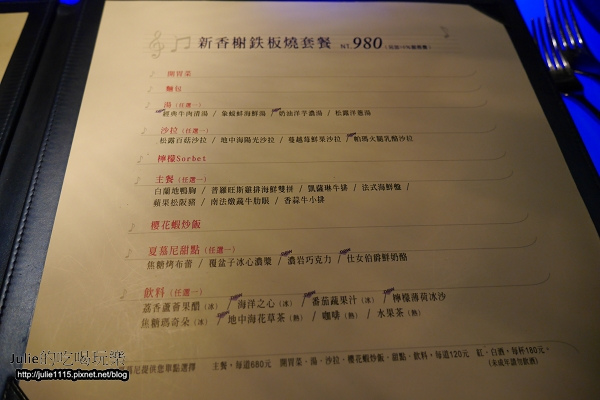 新香榭鉄板燒套餐 NT.980
開胃菜
麵包
湯（任選一）
經典牛肉清湯 / 象蛤鮮海鮮湯 / 奶油洋芋濃湯 / 松露洋蔥湯
沙拉（任選一）
松露百菇沙拉 / 地中海陽光沙拉 / 蔓越莓鮮果沙拉 / 帕瑪火腿乳酪沙拉
檸檬Sorbet
主餐（任選一）
白蘭地鴨胸 / 普羅旺斯雞排海鮮雙拼 / 凱薩琳牛排 / 法式海鮮盤 /
蘋果松阪豬 / 南法燉蔬牛肋眼 / 香蒜牛小排
櫻花蝦炒飯
夏慕尼甜點（任選一）
焦糖烤布蕾 / 覆盆子冰心濃漿 / 濃岩巧克力 / 仕女伯爵鮮奶酪
飲料（任選一）
荔香蘆薈果醋（冰） / 海洋之心（冰） / 番茄蔬果汁（冰） / 檸檬薄荷冰沙
焦糖瑪奇朵（冰） / 地中海花草茶（熱） / 咖啡（熱） / 水果茶（熱）
慕尼提供您單點選擇 主餐，每道680元 開胃菜、湯、沙拉、櫻花蝦炒飯、甜點、飲料，每道120元 紅、白酒，每杯180元。
（未成年請勿飲酒）
Julie的吃喝玩樂
http://julie1115.pixnet.net/blog